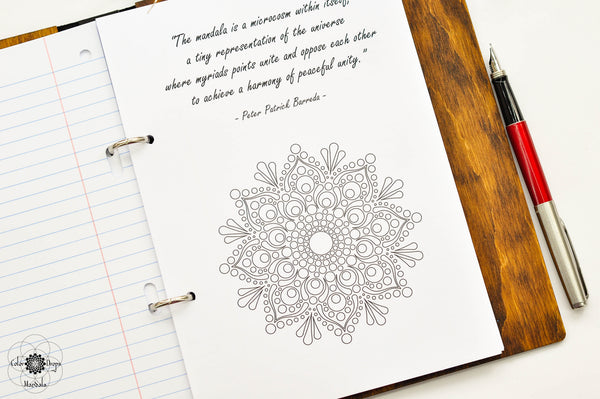 "The mandala is a microcosm within itself,
a tiny representation of the universe
where myriads points unite and oppose each other
to achieve a harmony of peaceful unity."
- Peter Patrick Barreda -
Color Drops
Mandala